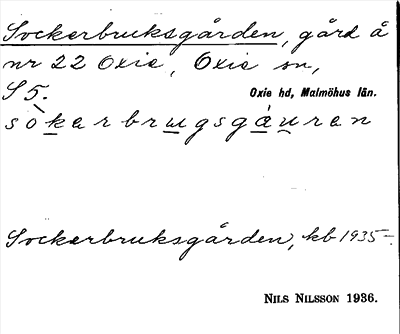 Sockerbruksgården, gård å
nr 22 Oxie, Oxie sn,
S 5.
Oxie hd, Malmöhus län.
sòkerbrugsgàuren
Sockerbruksgården, kb 1935-.
NILS NILSSON 1936.